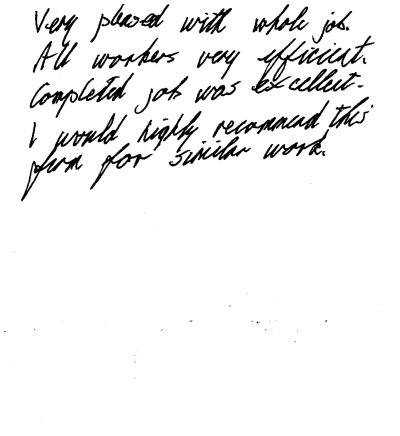 Very pleased with whole job.
All workers very efficient.
Completed job was excellent.
I would highly recommend this
firm for similar work.